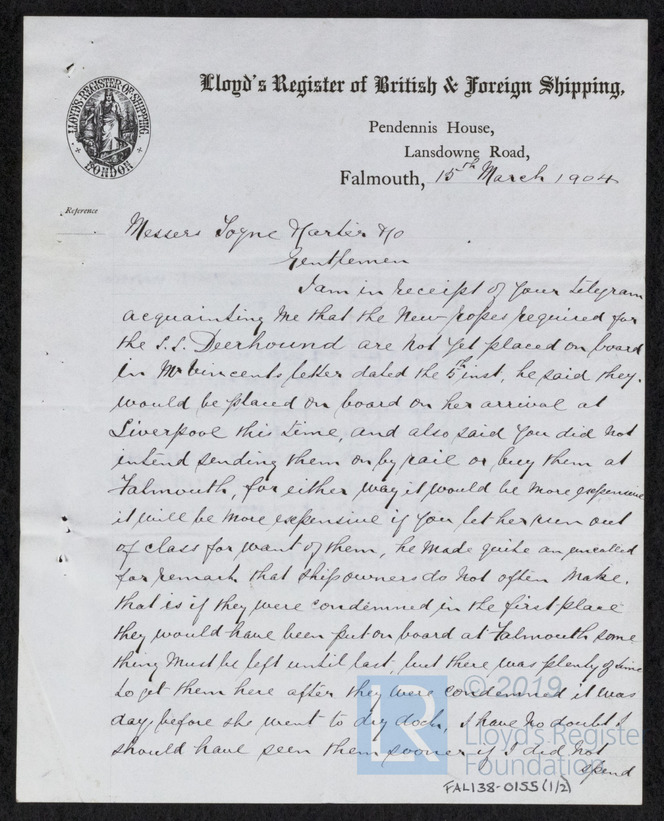 Lloyd's Register of British & Foreign Shipping.
LLOYD'S REGISTER OF SHIPPING
LONDON
Pendennis House,
Lansdowne Road,
Falmouth, 15th March 1904
Reference
Messers Toyne Carter & Co
Gentlemen
I am in receipt of your telegram
acquainting me that the new ropes required for
the S.S. Deerhound are not yet placed on board
in Mr Vincents letter dated the 5th inst, he said they
would be placed on board on her arrival at
Liverpool this time, and also said you did not
intend sending them on by rail or buy them at
Falmouth, for either way it would be more expensive
it will be more expensive if you let her run out
of class for want of them, he made quite an uncalled
for remark that shipowners do not often make.
that is if they were condemned in the first place
they would have been put on board at Falmouth some
thing must be left until last, but there was plenty of time
to get them here after they were condemned it was
day before she went to dry dock, I have no doubt I
should have seen them sooner if I did not
spend
© 2019
Lloyd's Registe
Foundation
FAL138-0155(1/2)